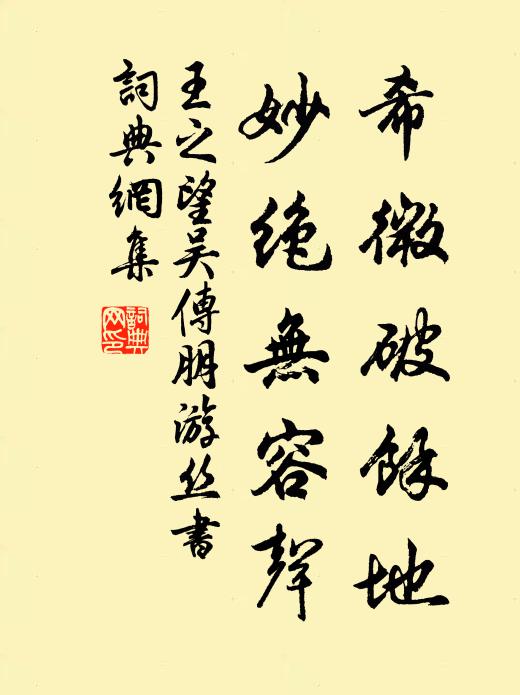 希微破餘地
妙絶無容聲
王之望吴傅朋游丝書
詞典網集
詞典网印